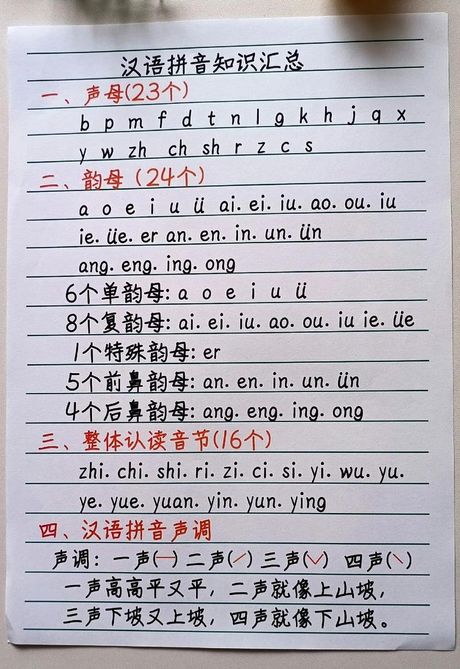 汉语拼音知识汇总
一、声母(23个)
b p m f d t n l g k h j q x
y w zh ch sh r z c s
二、韵母(24个)
a o e i u ü ai. ei. iu. ao. ou. iu
ie. üe. er an. en. in. un. ün
ang. eng. ing. ong
6个单韵母: a o e i u ü
8个复韵母: ai. ei. iu. ao. ou. iu ie. üe
1个特殊韵母: er
5个前鼻韵母: an. en. in. un. ün
4个后鼻韵母: ang. eng. ing. ong
三、整体认读音节(16个)
zhi. chi. shi. ri. zi. ci. si. yi. wu. yu.
ye. yue. yuan. yin. yun. ying
四、汉语拼音声调
声调: 一声(一) 二声(ˊ) 三声(ˇ) 四声(ˋ)
一声高高平又平，二声就像上山坡，
三声下坡又上坡，四声就像下山坡。